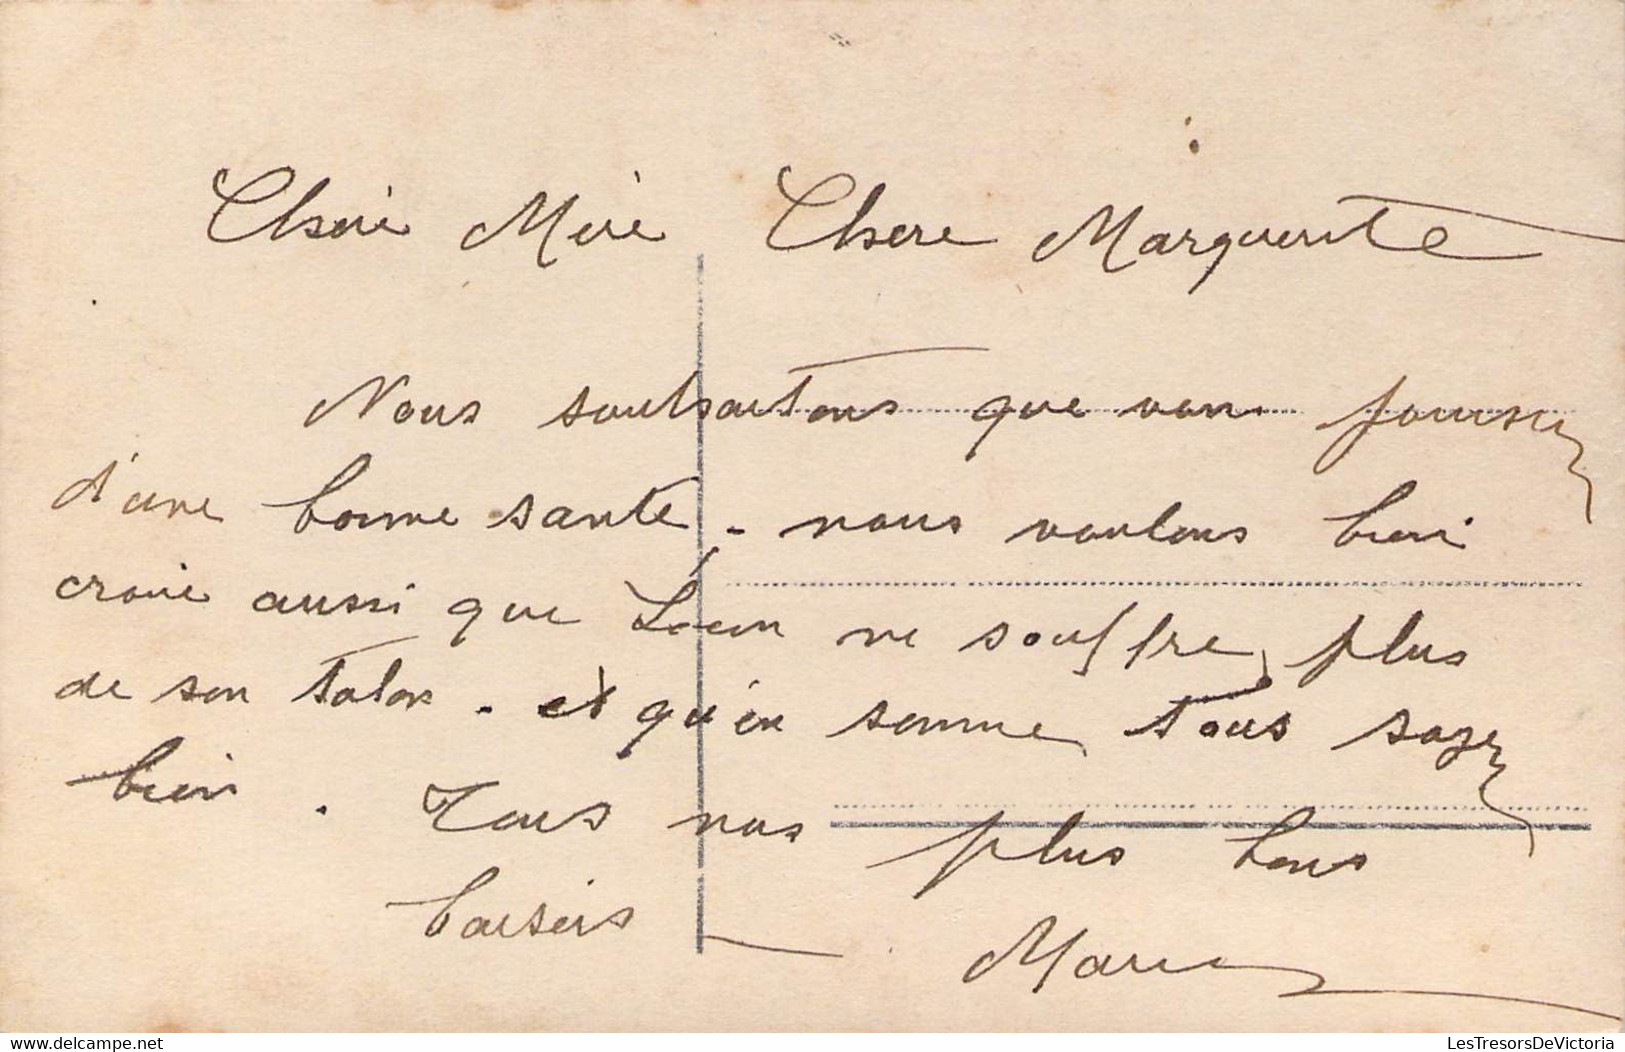 Chère Mère Chère Marguerite
Nous souhaitons que vous jouissez
d'une bonne santé, - nous voulons bien
croire aussi que Léon ne souffre plus
de son talon - et qu'en somme tous soyez
bien. Tous nos plus bons
baisers
Marie
delcampe.net
LesTresorsDeVictoria